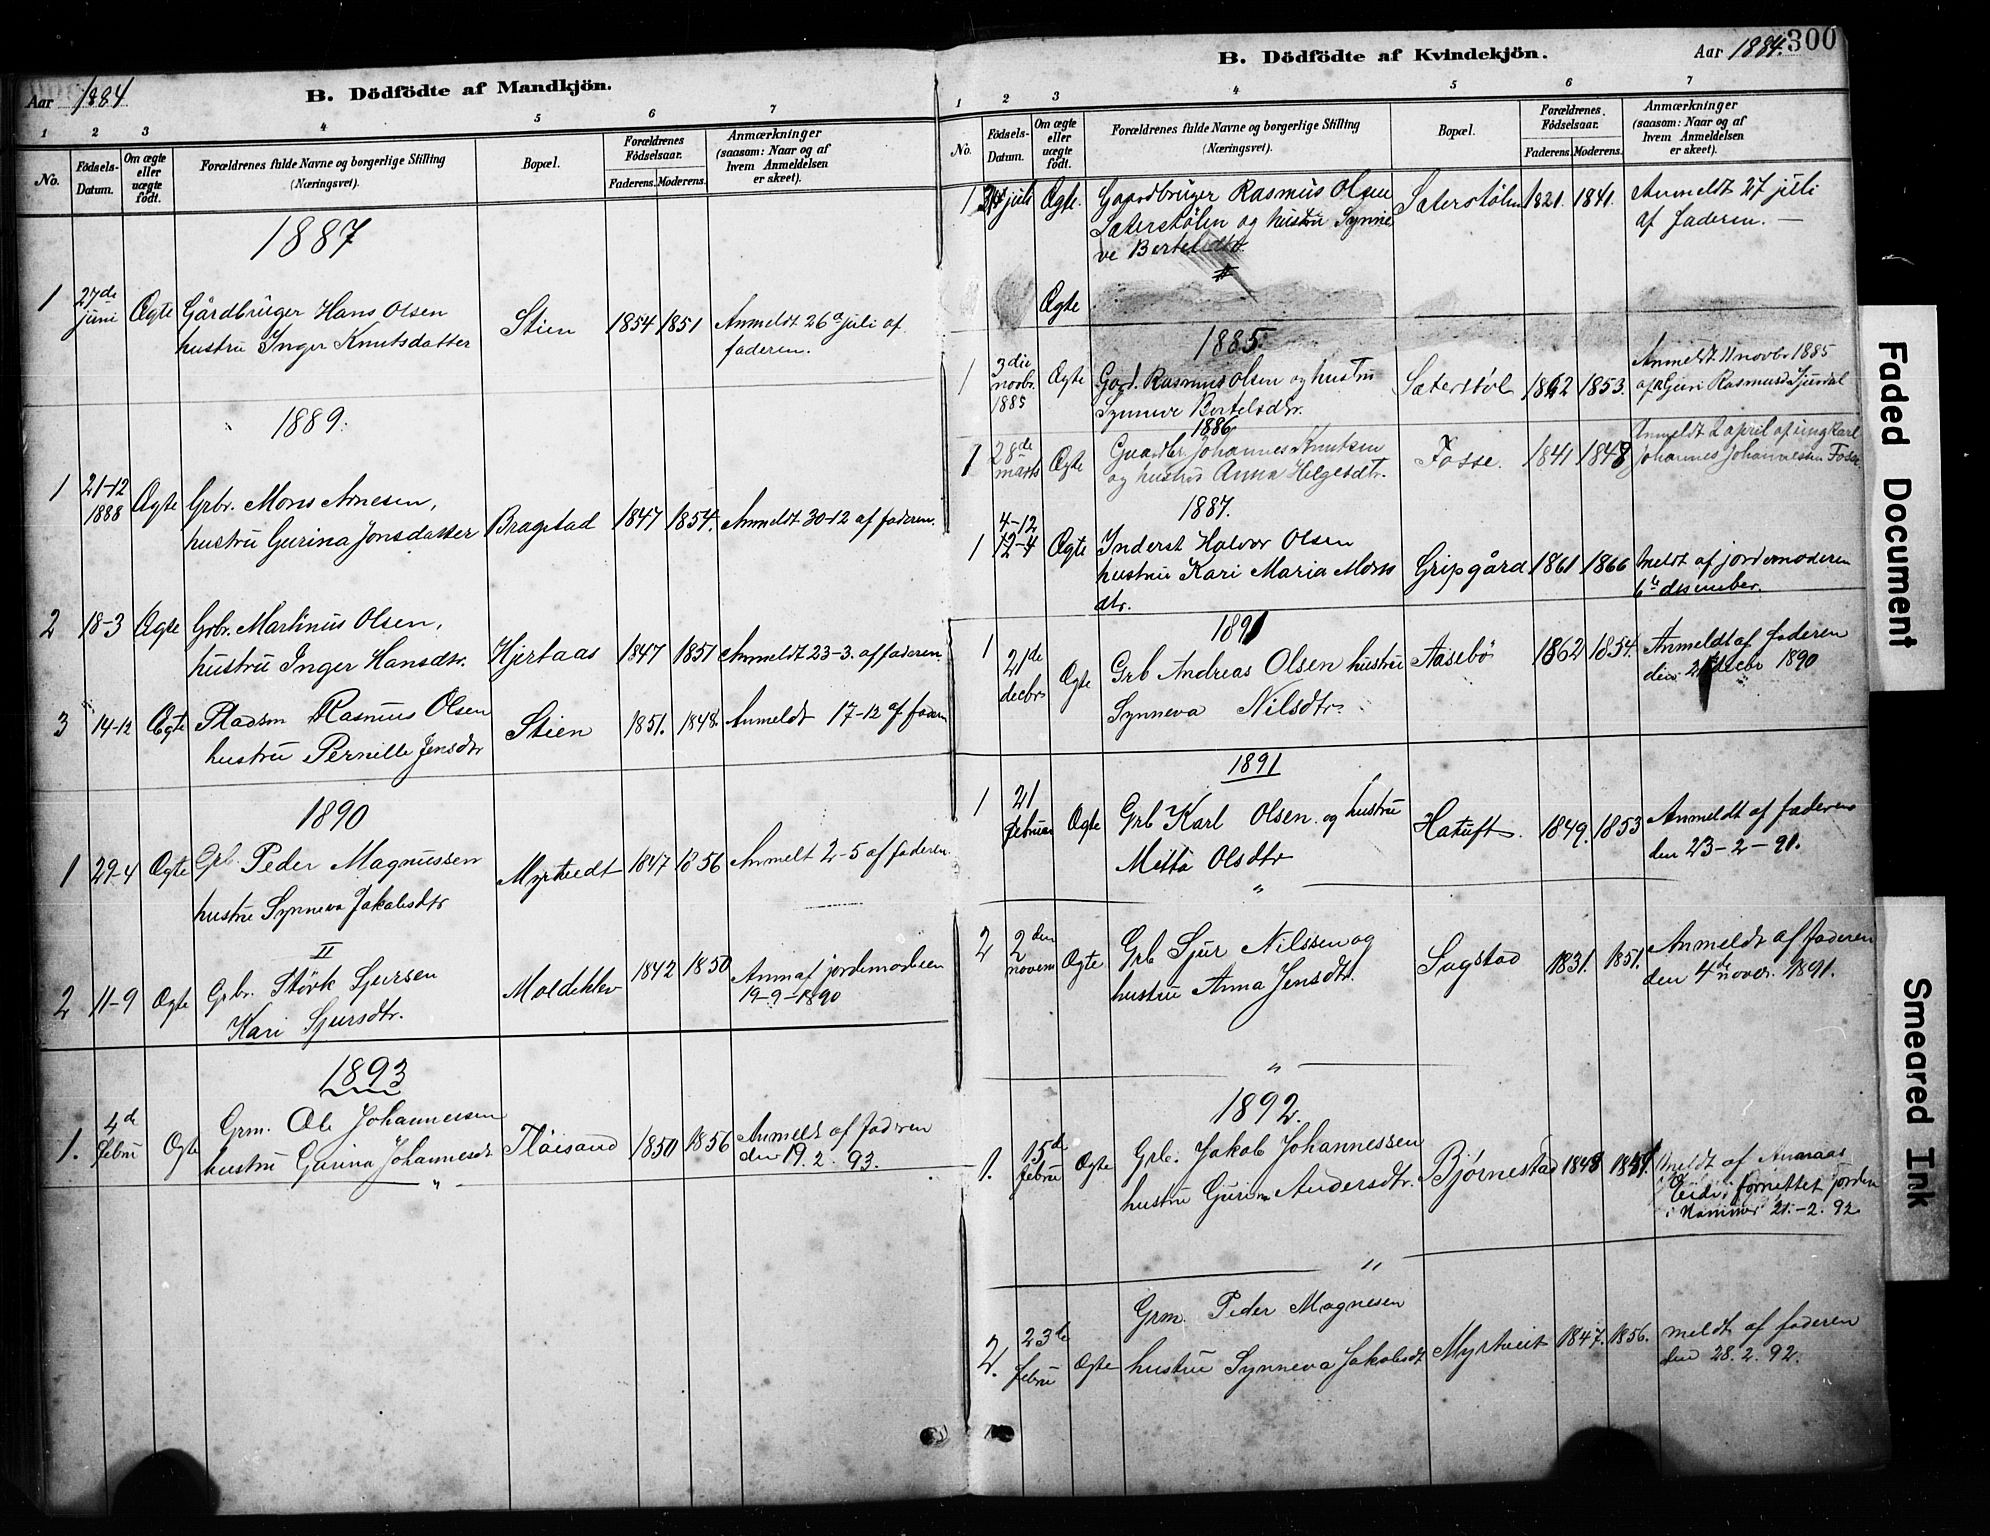 Aar 1884
B. Dödfödte af Mandkjön.
1 2 3 4 5 6 7
No.
Födsels-Datum.
Om ægte eller uægte födt.
Forældrenes fulde Navne og borgerlige Stilling
(Næringsvei).
Bopæl.
Forældrenes Födselsaar.
Faderens. Moderens.
Anmærkninger
(saasom: Naar og af
hvem Anmeldelsen
er skeet).
1887
1 27de juni Ægte Gårdbruger Hans Olsen
hustru Inger Knutsdatter Stien 1854 1851 Anmeldt 26 juli af
faderen.
1889.
1 21-12 1888 Ægte Grbr. Mons Arnesen,
hustru Gurina Jonsdatter Bragstad 1847 1854. Anmeldt 30-12 af faderen.
2 18-3 Ægte Grbr. Martinus Olsen,
hustru Inger Hansdtr. Hjertaas 1847 1851 Anmeldt 23-3. af faderen.
3 14-12 Ægte Pladsm Rasmus Olsen
hustru Pernille Jensdtr Stien 1851. 1848. Anmeldt 17-12 af faderen
1890
1 29-4 Ægte Grb. Peder Magnussen
hustru Synneva Jakobsdtr Myrtvedt 1847 1856 Anmelt 2-5 af faderen.
II
2 11-9 Ægte Grbr. Størk Sjursen
Kari Sjursdtr. Moldeklev 1842 1850 Anm af jordemoderen
19-9-1890
1893
1. 4de febru Ægte Grm. Ole Johannessen
hustru Gurina Johannesdt Fløisand 1850 1856 Anmeldt af faderen
den 19. 2. 93.
"
B. Dödfödte af Kvindekjön.
Aar 1884. 300
1 2 3 4 5 6 7
No.
Födsels-Datum.
Om ægte eller uægte födt.
Forældrenes fulde Navne og borgerlige Stilling
(Næringsvei).
Bopæl.
Forældrenes Födselsaar.
Faderens. Moderens.
Anmærkninger
(saasom: Naar og af
hvem Anmeldelsen
er skeet).
1 juli Ægte. Gaardbruger Rasmus Olsen
Sæterstølen og hustru Synne
ve Bertelsdtr Sæterstølen 1821. 1841. Anmeldt 27 juli
af faderen. —
Ægte
1885.
1 3die novbr. 1885 Ægte Gard. Rasmus Olsen og hustru
Synneve Bertelsdtr. Sæterstøl 1853. Anmeldt 11 novbr 1885
af Guri Rasmusd
1886
1 28de marts Ægte Gaardbr. Johannes Knutsen
og hustru Anna Helgesdtr. Fosse. 1841 1848 Anmeldt 2 april af ungkarl
Johannes Johannessen Fosse
1887.
1 4-12 12-4 Ægte Inderst Halvor Olsen
hustru Kari Maria Mons
dtr. Gripgård 1861 1866 Meldt af jordemoderen
6te desember.
1891
1 21de decbr Ægte Grb Andreas Olsen hustru
Synneva Nilsdtr. Aasebø 1862 1854. Anmeldt af faderen
den decbr 1890
1891
1 21 februar Ægte Grb Karl Olsen og hustru
Mitta Olsdtr Hatuft. 1849. 1853 Anmeldt af faderen
den 23-2-91.
"
2 2den novem Ægte Grb Sjur Nilssen og
hustru Anna Jensdtr. Sagstad 1831. 1851. Anmeldt af faderen
den 4de novbr. 1891.
"
1892.
1. 15de febru Ægte Grb. Jakob Johannessen
hustru Andersdtr. Bjørnestad meldt af
21.-2. 92
"
2. 23de febru Ægte Grm. Peder Magnesen
hustru Synneva Jakobsdt Myrtveit 1847. 1856. meldt af faderen
den 28. 2. 92.
Faded Document
Smeared Ink